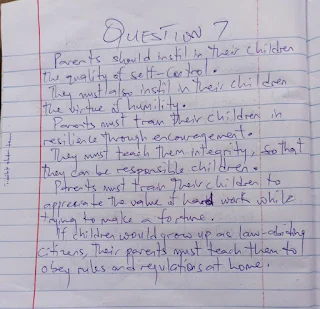 QUESTION 7
Parents should instil in their children
the quality of self-control.
They must also instil in their children
the virtue of humility.
Parents must train their children in
resilience through encouragement.
They must teach them integrity, so that
they can be responsible children.
Parents must train their children to
appreciate the value of hard work while
trying to make a fortune.
If children would grow up as law-abiding
citizens, their parents must teach them to
obey rules and regulations at home.